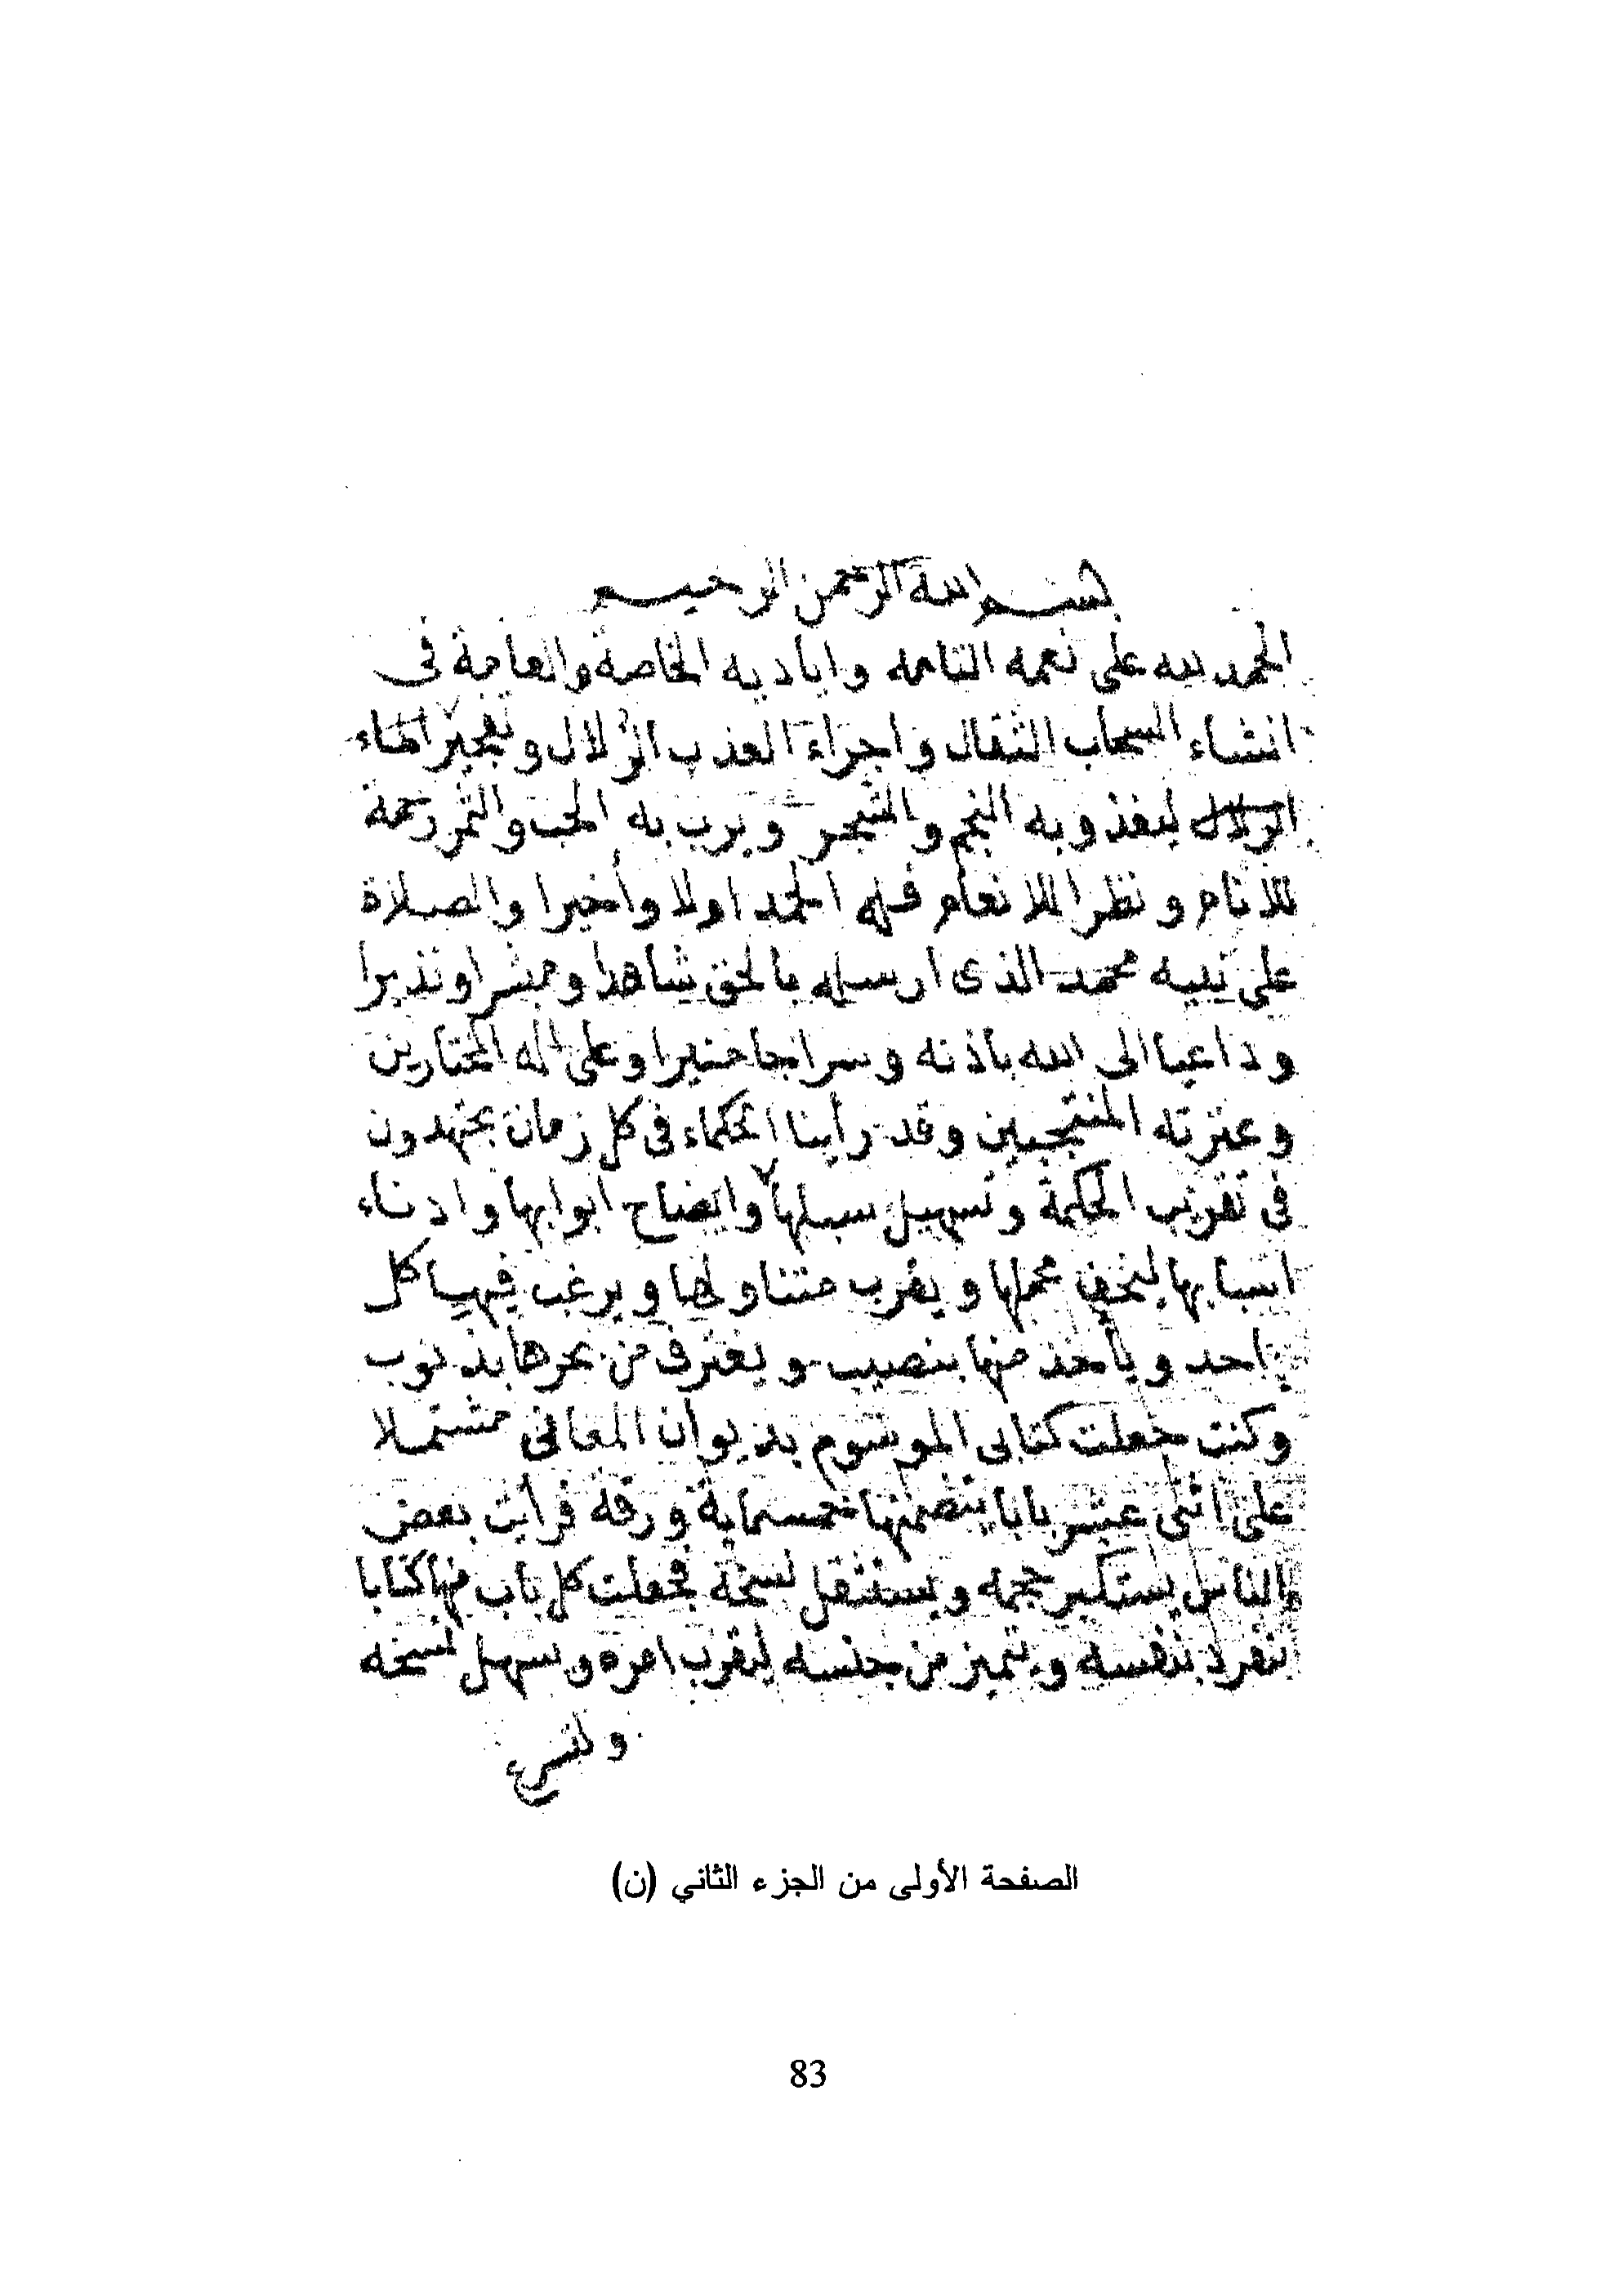 بسم الله الرحمن الرحيم
الحمد لله على نعمه التامه واياديه الخاصة والعامة فى
انشاء السحاب الثقال واجراء العذب الزلال وتفجير الماء
الزلال ليغذو به النجم والشجر ويرب به الحب والثمر رحمة
للانام ونظرا للانعام فله الحمد اولا وأخيرا والصلاة
على نبيه محمد الذى ارسله بالحق شاهدا ومبشرا ونذيرا
وداعيا الى الله باذنه وسراجا منيرا وعلى اله المختارين
وعترته المنتجبين وقد رأينا الحكماء فى كل زمان يجتهدون
فى تقريب الحكمة وتسهيل سبلها وايضاح ابوابها وادناء
اسبابها ليخف محملها ويقرب متناولها ويرغب فيها كل
احد ويأخذ منها بنصيب ويغترف من بحرها بذنوب
وكنت جعلت كتابى الموسوم بديوان المعانى مشتملا
على اثنى عشر بابا يتضمنها خمسماية ورقة فرأيت بعض
الناس يستكبر حجمه ويستثقل نسخة فجعلت كل باب منها كتابا
تفرد بنفسه وتميز من جنسه ليقرب امره ويسهل نسخه
وليسرع
الصفحة الأولى من الجزء الثاني (ن)
83